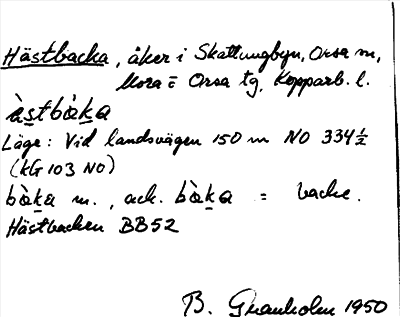 Hästbacka, åker i Skattungbyn, Orsa sn,
Mora o Orsa tg, Kopparb. l.
ὰstbὰka
Läge: Vid landsvägen 150 m NO 334½
(KG 103 NO)
bὰka m., ack. bὰka = backe.
Hästbacken BB52
B. Granholm 1950